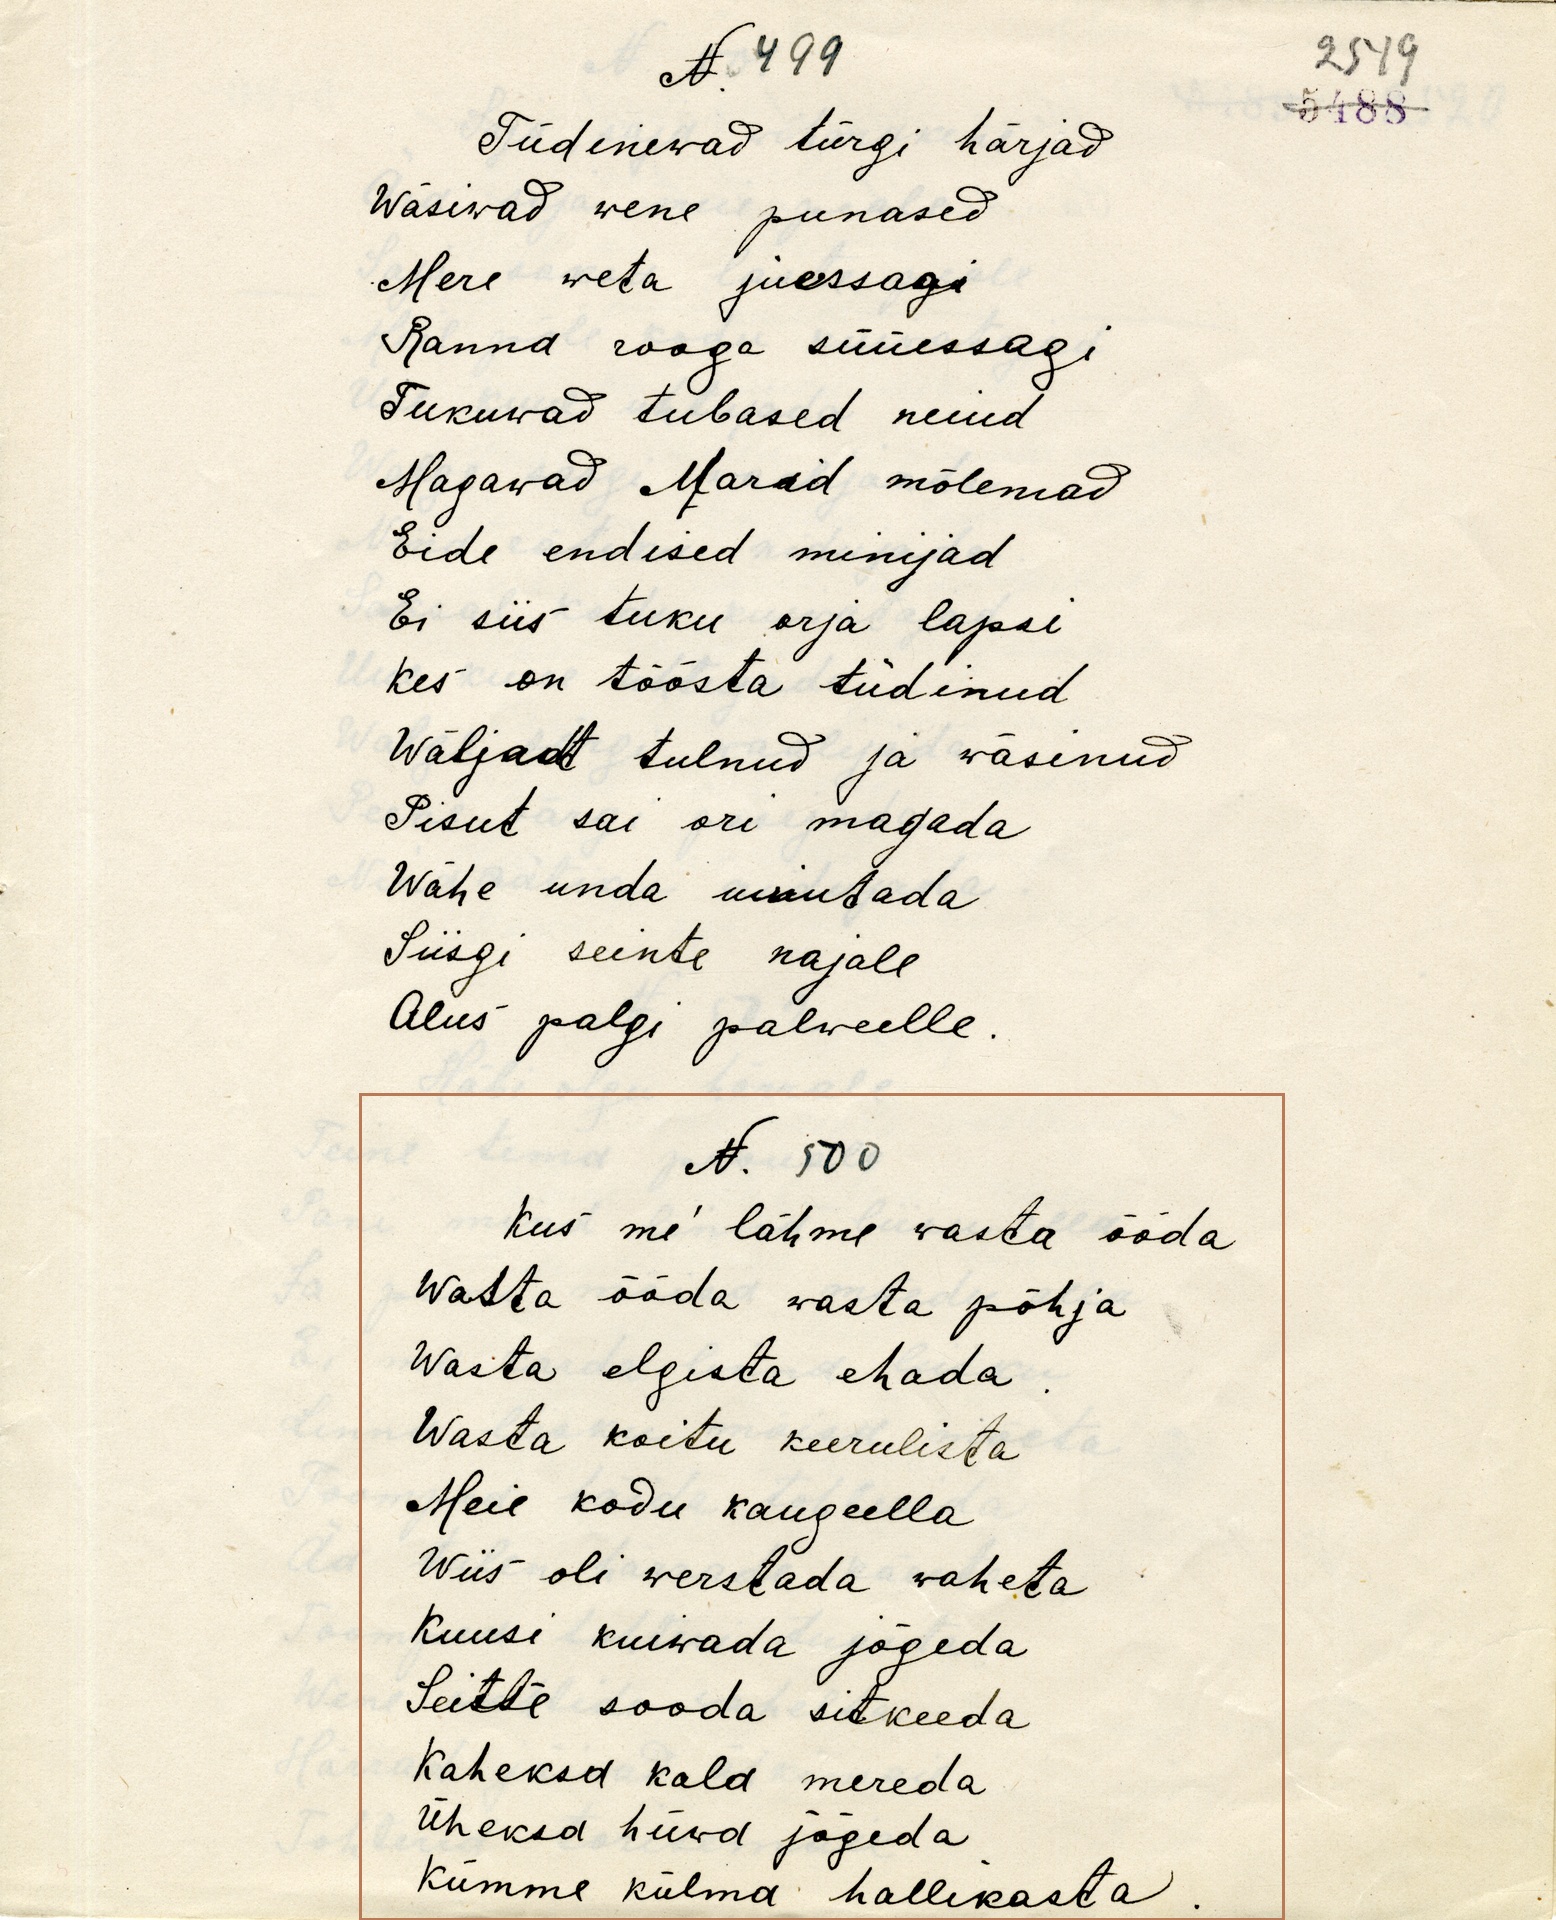 N. 499
2519
5488
Tüdinewad türgi härjad
Wäsiwad wene punased
Mere weta juessagi
Rannd rooga süüessagi
Tukuwad tubased neiud
Magawad Marid mõlemad
Eide endised minijad
Ei siis tuku orja lapsi
kes on töösta tüdinud
Wäljadt tulnud ja wäsinud
Pisut sai ori magada
Wähe unda uinutada
Siisgi seinte najale
Alus palgi palweelle.
N. 500
Kus me' lähme wasta ööda
Wasta ööda wasta põhja
Wasta elgista ehada.
Wasta koitu keerulista
Meie kodu kaugeella
Wiis oli werstada waheta
Kuusi kuiwada jõgeda
Seitse sooda sitkeeda
Kaheksa kala mereda
Üheksa hüwa jõgeda
Kümme külma hallikasta.